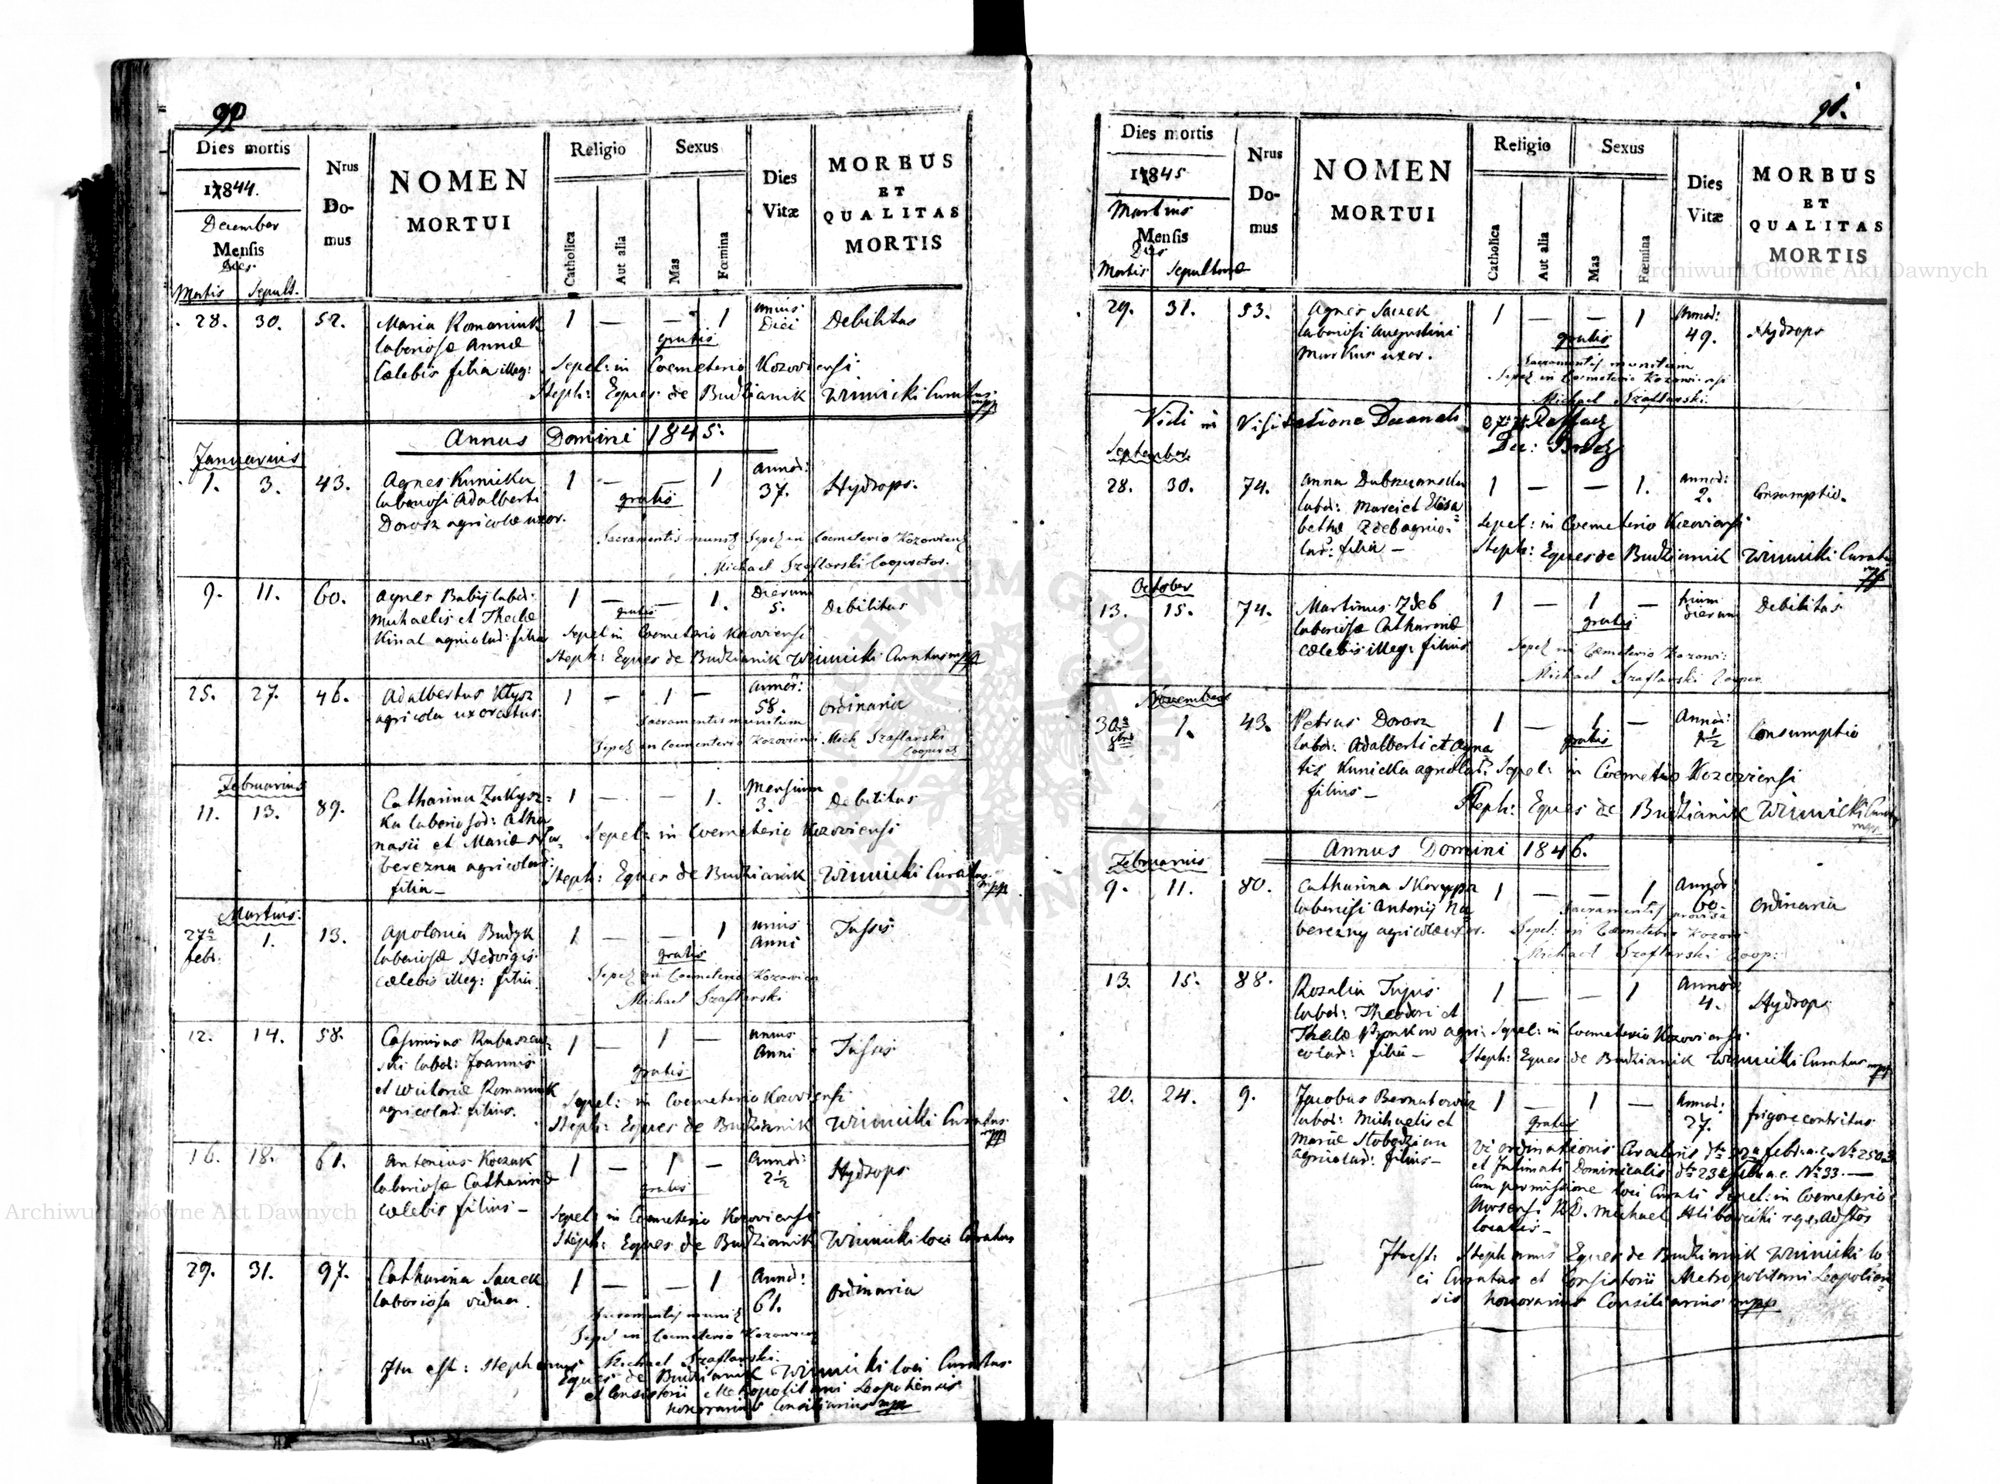 90
Dies mortis
Nrus Domus
NOMEN MORTUI
Religio
Sexus
Dies Vitæ
MORBUS ET QUALITAS MORTIS
1844.
December
Mensis
Dies
Mortis Sepult.
Catholica
Aut alia
Mas
Fœmina
28. 30. 52. Maria Romaniuk 1 — — 1 unius Diei Debilitas
laboriosæ Annæ gratis
Cœlebis filia illeg: Sepel: in Coemeterio Kozoviensi
Steph: Eques de Budzianik Winnicki Curatus mpp
Annus Domini 1845.
Januarius
1. 3. 43. Agnes Kunicka 1 — — 1 Annor: 37. Hydrops.
laboriosi Adalberti gratis
Dorosz agricolæ uxor.
Sacramentis munit Sepel in Coemeterio Kozoviens
Michael Szaflarski Cooperator.
9. 11. 60. Agnes Babij labor: 1 — — 1. Dierum 5. Debilitas
Michaelis et Theclæ gratis
Kinal agricolar: filia Sepel in Coemeterio Kozoviensi
Steph: Eques de Budzianik Winnicki Curatus mpp
25. 27. 46. Adalbertus Klysz 1 — 1 — Annor: 58. Ordinaria
agricola uxoratus.
Sacramentis munitum
Sepel in Coemeterio Kozoviensi Mich Szaflarski
Cooperat
Februarius
11. 13. 89. Catharina Zukysz= 1 — — 1. Mensium 3. Debilitas
ka laboriosor: Atha
nasii et Mariæ Sepel: in Coemeterio Kozoviensi
berezna agricolar:
filia — Steph: Eques de Budzianik Winnicki Curatus mpp
Martius.
27a febr: 1. 13. Apolonia Budyk 1 — — 1 unius Anni Tussis
laboriosæ Hedvigis gratis
cælebis illeg: filia. Sepel in Coemeterio Kozovien
Michael Szaflarski
12. 14. 58. Casimirus Rubaszew 1 — 1 — unius Anni Tussis
ski labor: Joannis
et Victoriæ Romaniuk gratis
agricolar: filius. Sepel: in Coemeterio Kozoviensi
Steph: Eques de Budzianik Winnicki Curatus mpp
16. 18. 61. Antonius Koczuk 1 — 1 — Annor: 2½ Hydrops
laboriosæ Catharinæ gratis
cælebis filius — Sepel: in Coemeterio Kozoviensi
Steph: Eques de Budzianik Winnicki loci Curatus
29. 31. 97. Catharina Saczek 1 — — 1 Annor: 61. Ordinaria
laboriosa vidua.
Sacramentis munit
Sepel in Coemeterio Kozoviens
Michael Szaflarski
Ita est: Stephanus Eques de Budzianik Winnicki loci Curatus
et Consistorii Metropolitani Leopoliensis
honorarius Consiliarius mpp
91.
Dies mortis
Nrus Domus
NOMEN MORTUI
Religio
Sexus
Dies Vitæ
MORBUS ET QUALITAS MORTIS
1845
Martius
Mensis
Dies
Mortis Sepulturæ
Catholica
Aut alia
Mas
Fœmina
29. 31. 53. Agnes Saczek 1 — — 1 Annor: 49. Hydrops
laboriosi Augustini gratis
Markus uxor.
Sacramentis munitam
Sepel in Coemeterio Kozoviensi
Michael Szaflarski
Vidi in Visitatione Decanali
September
28. 30. 74. Anna Dubrzanska 1 — — 1. Annor: 2. Consumptio.
labor: Marci et Elisa
bethæ Zdeb agrico= Sepel: in Coemeterio Kozoviensi
lar: filia — Steph: Eques de Budzianik Winnicki Curatus mpp
October
13. 15. 74. Martinus Zdeb 1 — 1 — trium dierum Debilitas
laboriosæ Catharinæ gratis
cælebis illeg: filius Sepel in Cæmeterio Kozovi:
Michael Szaflarski Cooper
November
30a 8bris 1. 43. Petrus Dorosz 1 — 1 — Annor: Consumptio
labor: Adalberti et Agna gratis
tis Kunicka agricolar: Sepel: in Coemeterio Kozoviensi
filius — Steph: Eques de Budzianik Winnicki Curatus mpp
Annus Domini 1846.
Februarius
9. 11. 80. Catharina Skorypa 1 — — 1 Annor: 60. Ordinaria
laboriosi Antonij Na
berezny agricolæ uxor. Sacramentis provisa
Sepel: in Coemeterio Kozovi
Michael Szaflarski Coop:
13. 15. 88. Rozalia Tujus 1 — — 1 Annor: 4. Hydrop:
labor: Theodori et
Theclæ agri: Sepel: in Coemeterio Kozoviensi
colar: filia — Steph: Eques de Budzianik Winnicki Curatus mpp
20. 24. 9. Jacobus Bernatowicz 1 — 1 — Annor: 27. frigore contritus
labor: Michaelis et gratis
Mariæ Slobodzian
agricolar: filius —
Vi ordinationis Circularis dto 22a febr. a. c. No 2503
et Intimati Dominicalis dto 23a febr a c. No 33. —
Cum permissione loci Curati Sepel: in Coemeterio
localis —
Ita est: Stephanus Eques de Budzianik Winnicki lo
ci Curatus et Consistorii Metropolitani Leopolien
sis honorarius Consiliarius mpp
Archiwum Główne Akt Dawnych
Archiwum Główne Akt Dawnych
ARCHIWUM GŁÓWNE AKT DAWNYCH